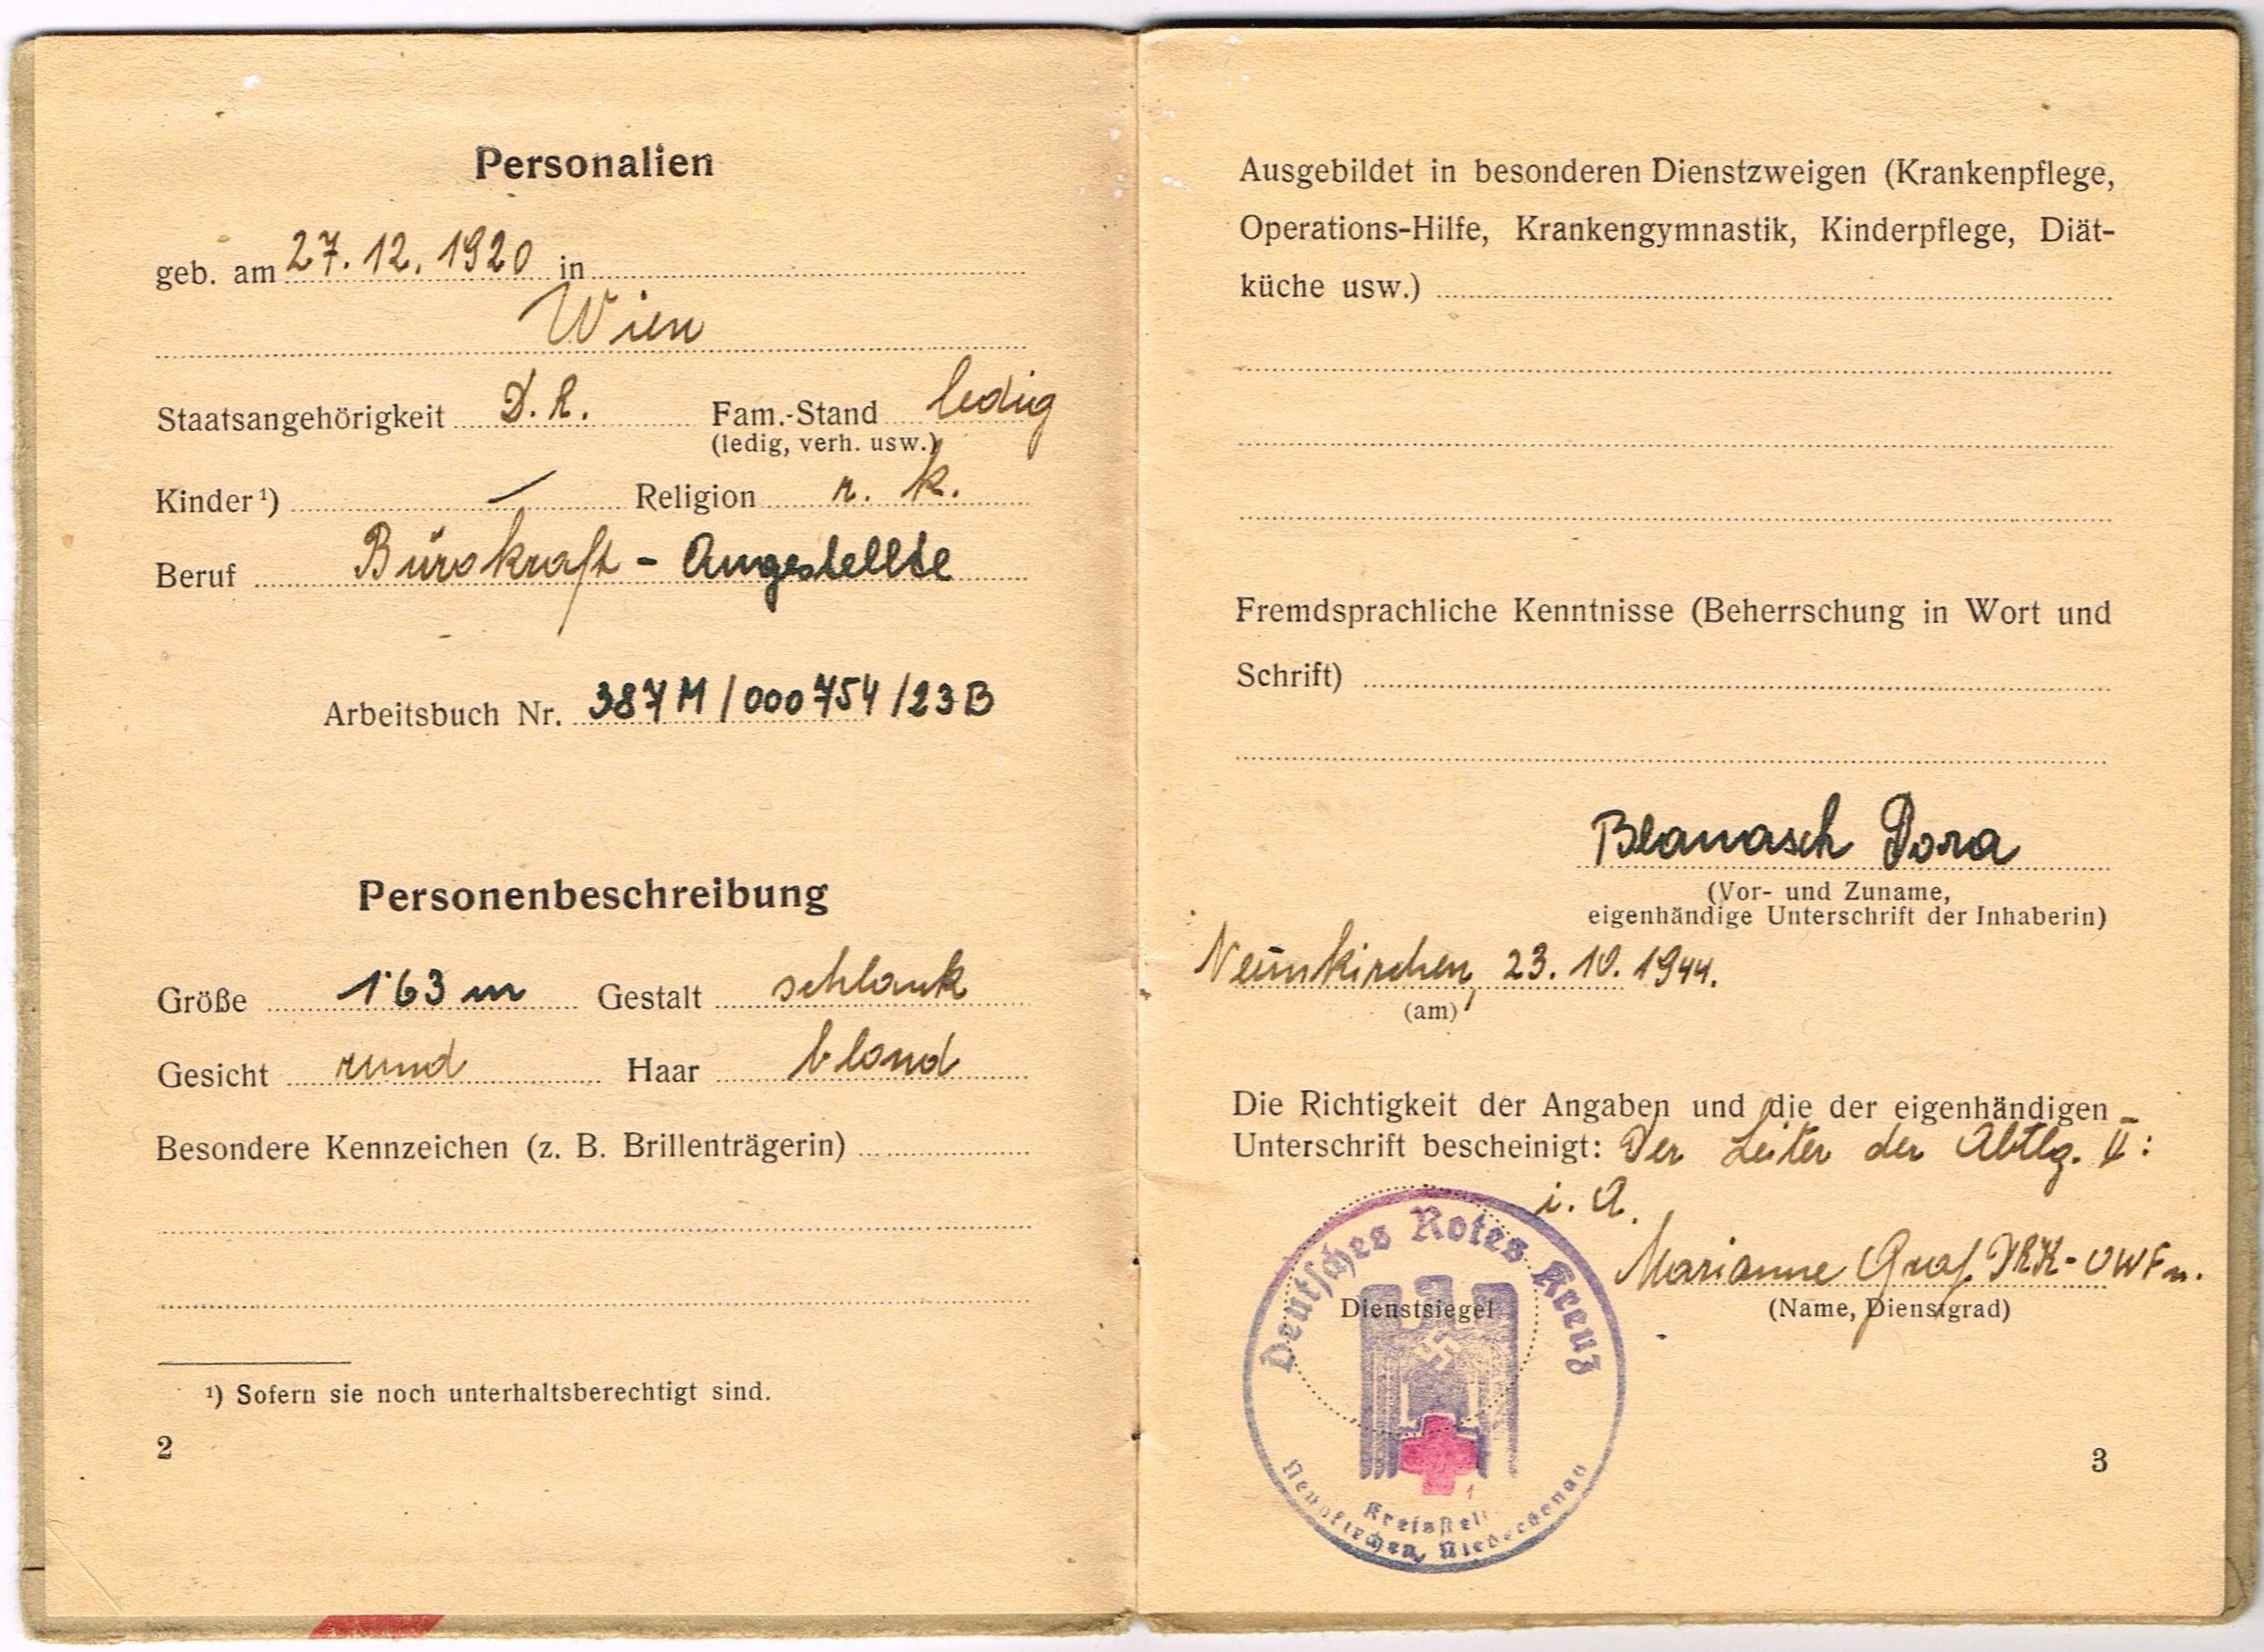 Personalien
geb. am 27. 12. 1920 in
Wien
Staatsangehörigkeit D. R. Fam.-Stand ledig
(ledig, verh. usw.)
Kinder ¹) — Religion r. k.
Beruf Bürokraft - Angestellte
Arbeitsbuch Nr. 387 M / 000 754 / 23 B
Personenbeschreibung
Größe 1'63 m Gestalt schlank
Gesicht rund Haar blond
Besondere Kennzeichen (z. B. Brillenträgerin)
¹) Sofern sie noch unterhaltsberechtigt sind.
2
Ausgebildet in besonderen Dienstzweigen (Krankenpflege,
Operations-Hilfe, Krankengymnastik, Kinderpflege, Diät-
küche usw.)
Fremdsprachliche Kenntnisse (Beherrschung in Wort und
Schrift)
Blanasch Dora
(Vor- und Zuname,
eigenhändige Unterschrift der Inhaberin)
Neunkirchen, 23. 10. 1944.
(am)
Die Richtigkeit der Angaben und die der eigenhändigen
Unterschrift bescheinigt: Der Leiter der Abtlg. II:
i. A.
Marianne Graf DRK-OWFn.
(Name, Dienstgrad)
Dienstsiegel
Deutsches Rotes Kreuz
Kreisstelle
Neunkirchen, Niederdonau
3